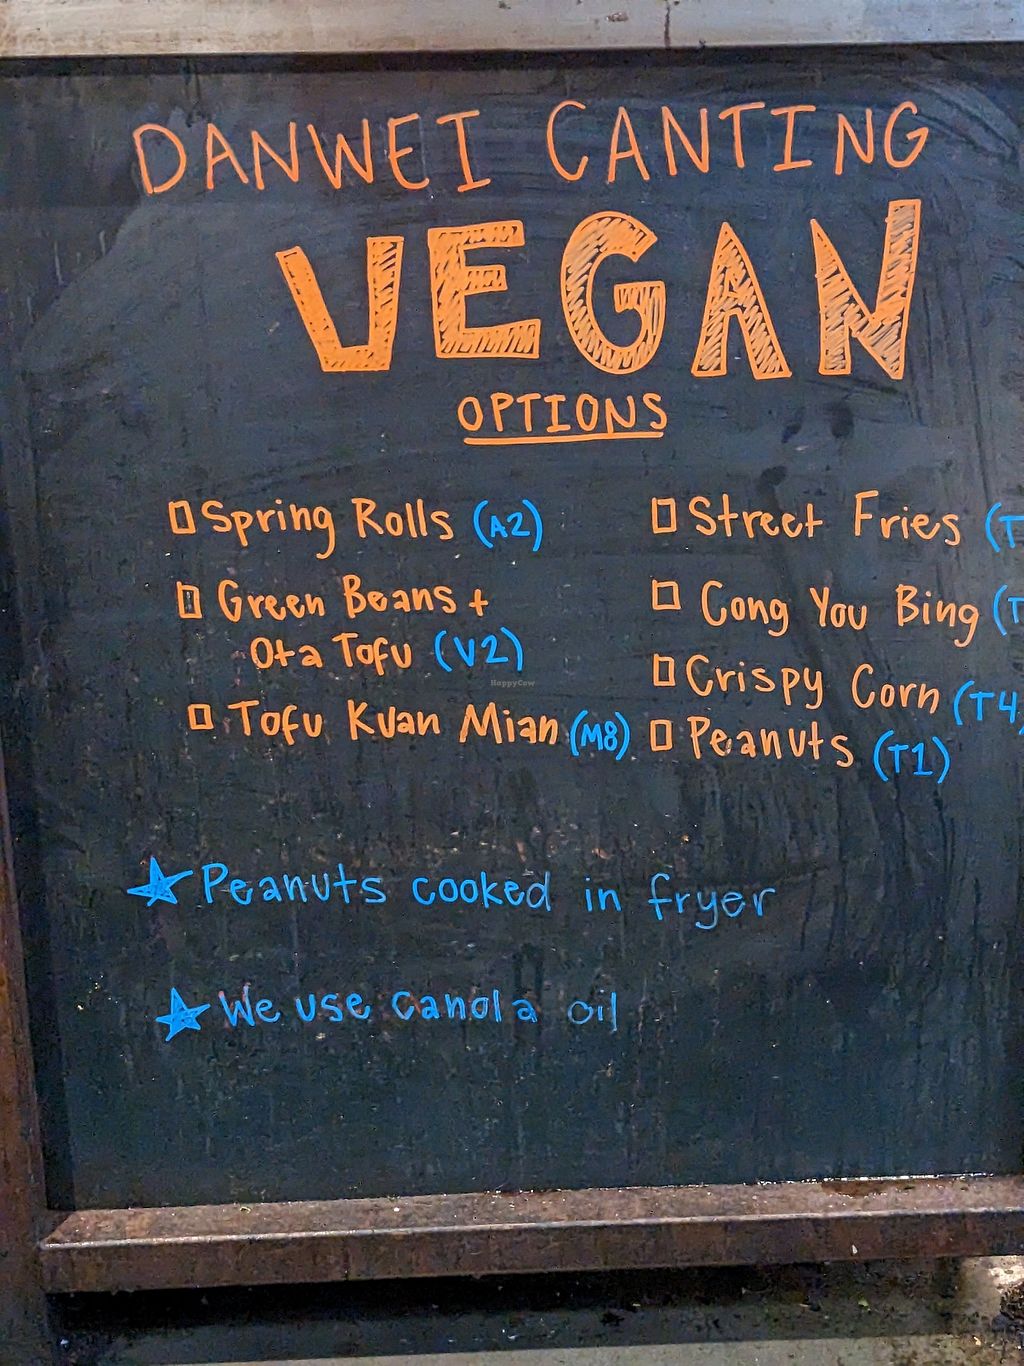 DANWEI CANTING
VEGAN
OPTIONS
Spring Rolls (A2)
Green Beans +
Ota Tofu (V2)
Tofu Kuan Mian (M8)
Street Fries (T
Cong You Bing (T
Crispy Corn (T4)
Peanuts (T1)
Peanuts cooked in fryer
We use canola oil
HappyCow